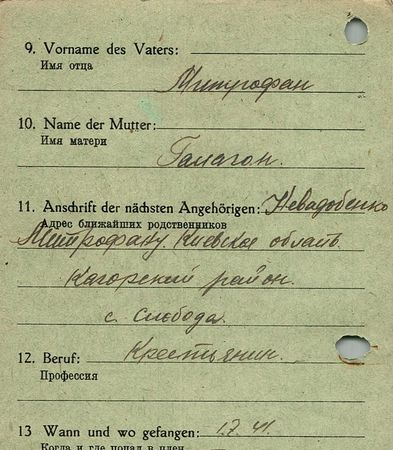 9. Vorname des Vaters:
Имя отца
Митрофан
10. Name der Mutter:
Имя матери
Галагон.
11. Anschrift der nächsten Angehörigen: Невадобенко
Адрес ближайших родственников
Митрофану. Киевская область
Кагорский район.
с. Слобода.
12. Beruf: Крестьянин.
Профессия
13 Wann und wo gefangen: 1.7.41.
Когда и где попал в плен